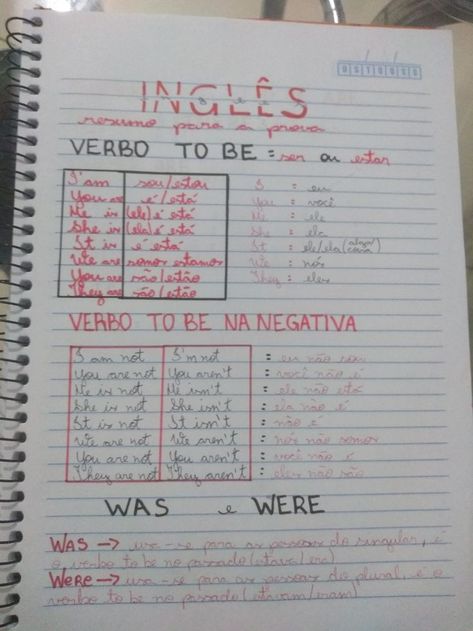 INGLÊS
resumo para a prova
VERBO TO BE = ser ou estar
I'am sou/estou I : eu
You are é/está You : você
He is (ele) é está He : ele
She is (ela) é está She : ela
It is é está It : ele/ela
We are somos estamos We : nós
You are são/estão They : eles
They are são/estão
VERBO TO BE NA NEGATIVA
I am not I'm not : eu não sou
You are not You aren't : você não é
He is not He isn't : ele não está
She is not She isn't : ela não é
It is not It isn't : não é
We are not We aren't : nós não somos
You are not You aren't : você não é
They are not They aren't : eles não são
WAS e WERE
WAS → usa-se para as pessoas do singular, é
o verbo to be no passado (
WERE → usa-se para as pessoas do plural, é o
verbo to be no passado (